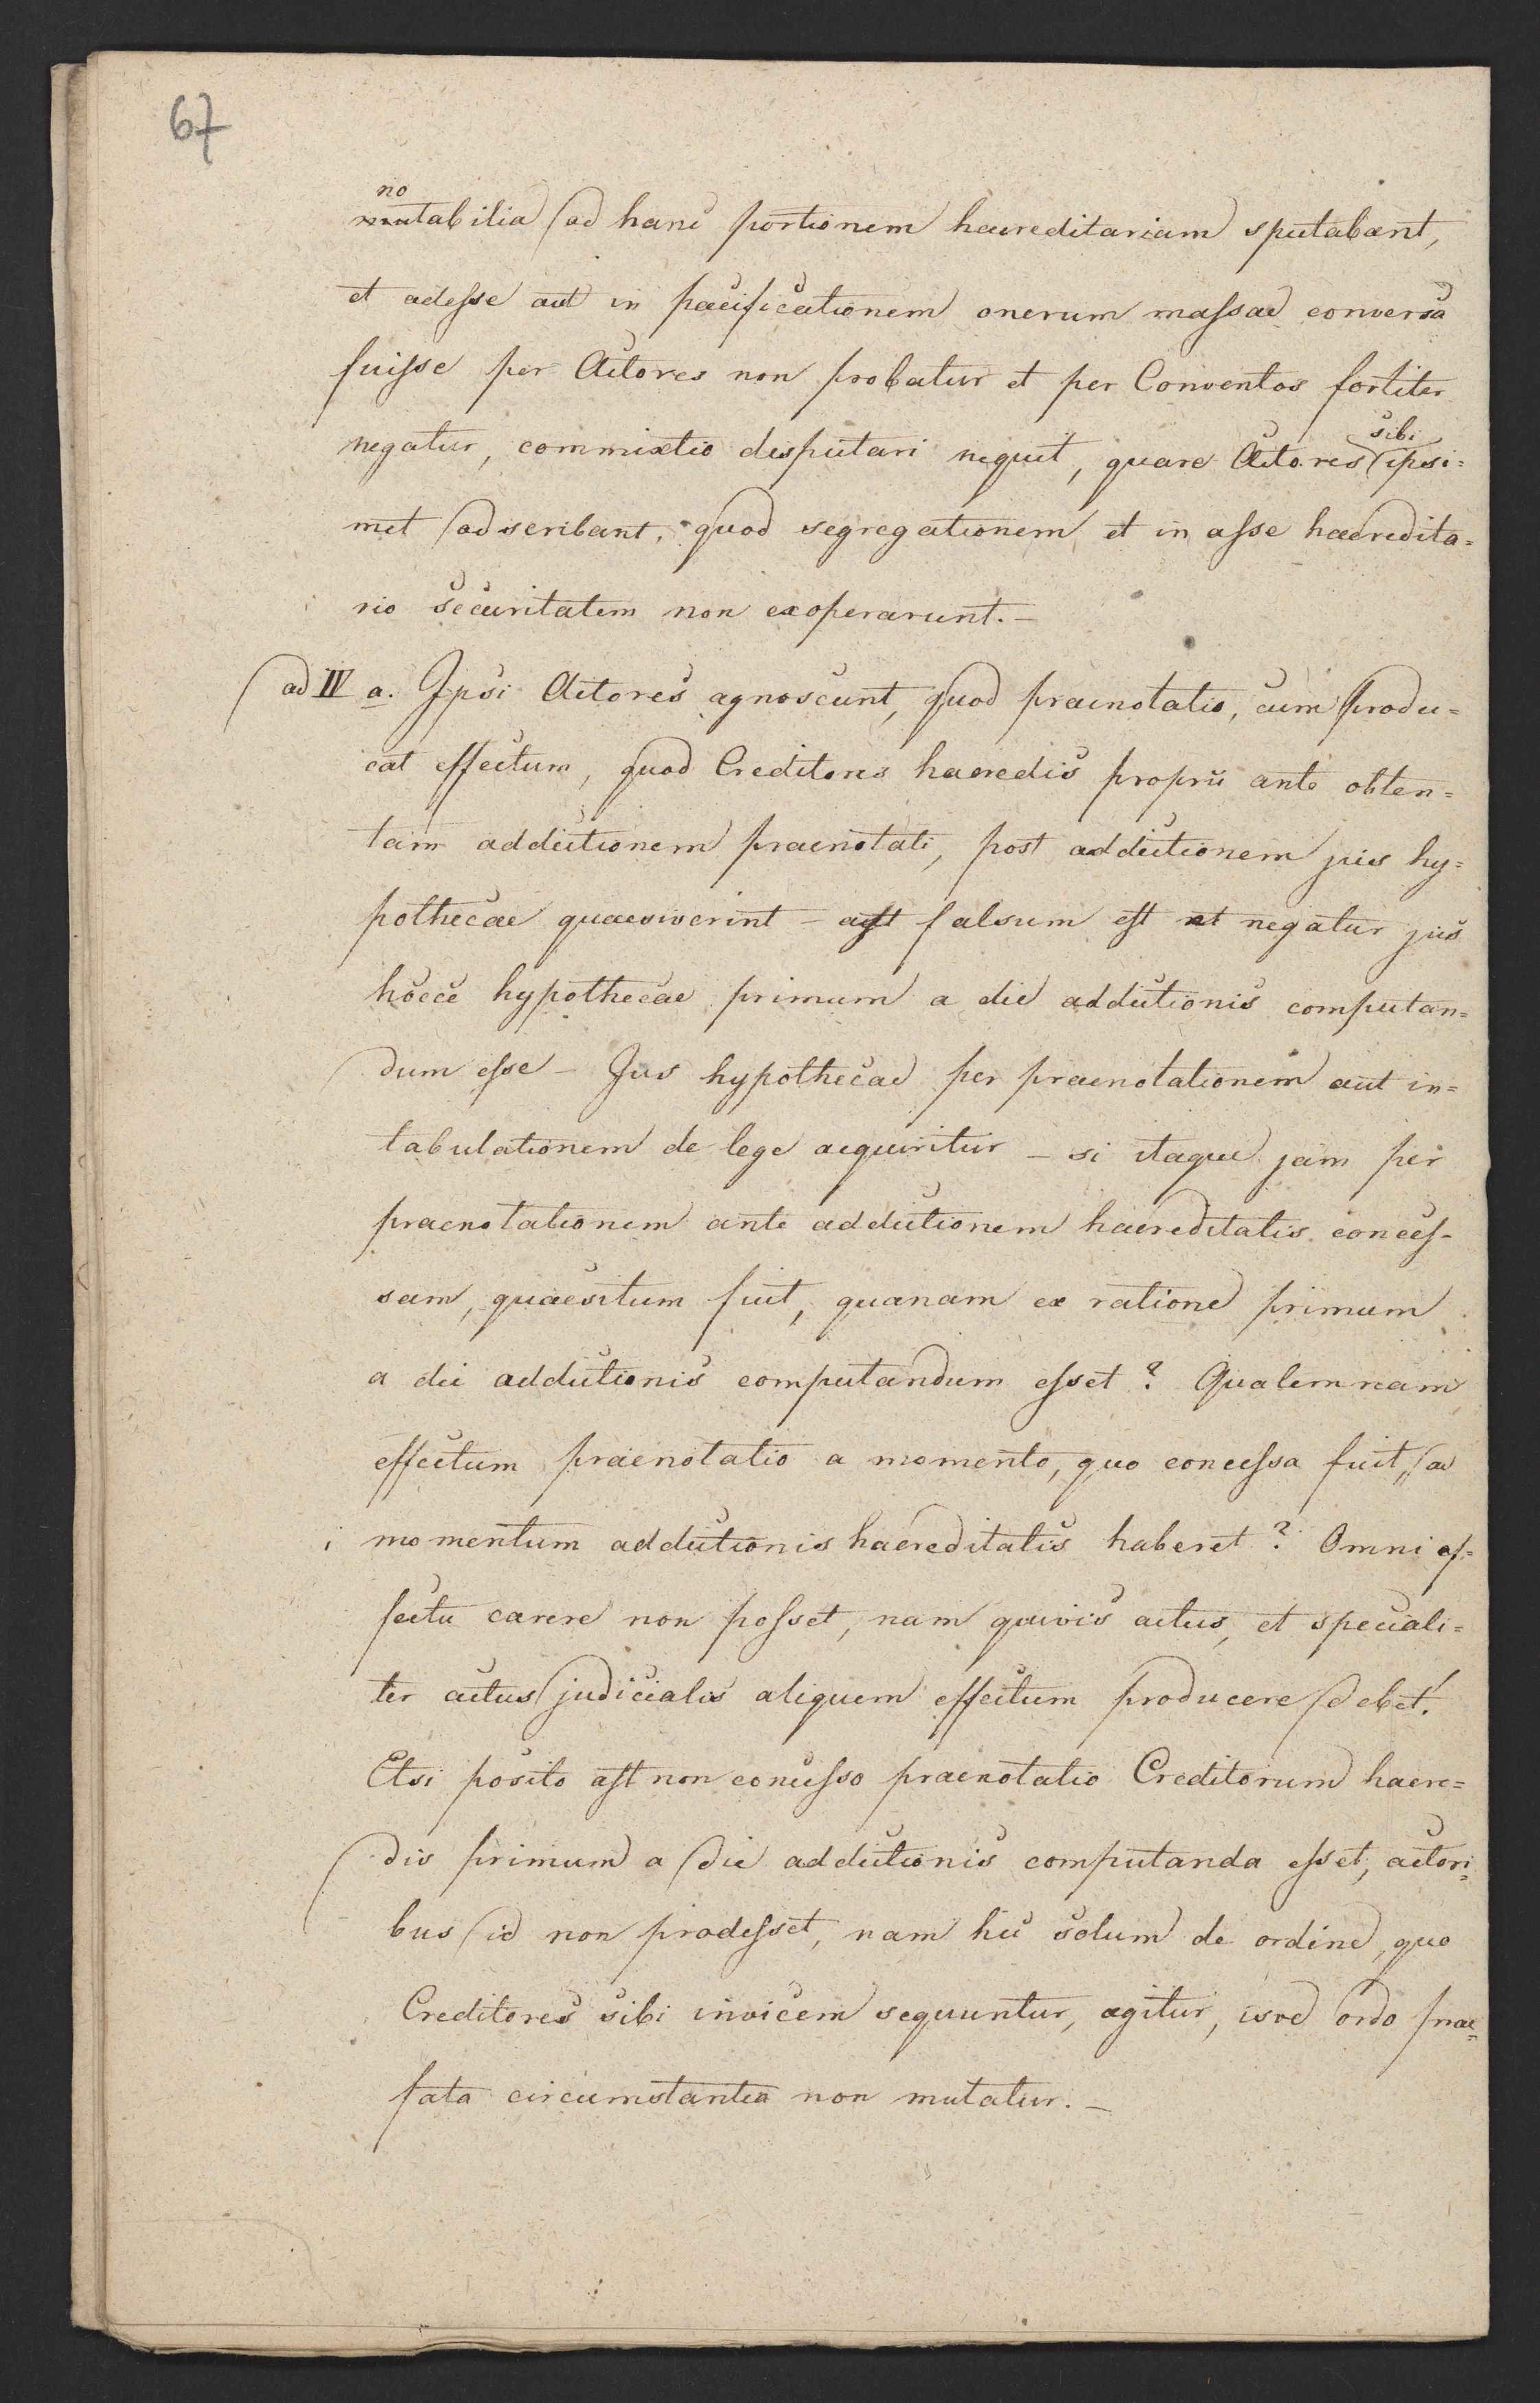 67
no
mutabilia ad hanc portionem haereditariam spectabant,
et adesse aut in pacificationem onerum massae conversa
fuisse per Actores non probatur et per Conventos fortiter
sibi
negatur, commixtio disputari nequit, quare Actores ipsi=
met adscribant, quod segregationem et in asse haeredita=
rio securitatem non exoperarunt.—
ad IV a. Ipsi Actores agnoscunt, quod praenotatio, cum produ=
cat effectum, quod Creditores haeredis proprii ante obten=
tam addictionem praenotati, post addictionem jus hy=
pothecae quaesiverint — ast falsum est et negatur jus
hocce hypothecae primum a die addictionis computan=
dum esse — Jus hypothecae per praenotationem aut in=
tabulationem de lege acquiritur — si itaque jam per
praenotationem ante addictionem haereditatis conces-
sam, quaesitum fuit, quanam ex ratione primum
a die addictionis computandum esset? Qualemnam
effectum praenotatio a momento, quo concessa fuit, ad
momentum addictionis haereditatis haberet? Omni ef=
fectu carere non posset, nam quivis actus, et speciali=
ter actus judicialis aliquem effectum producere debet!
Etsi posito ast non concesso praenotatio Creditorum haere=
dis primum a die addictionis computanda esset, actori=
bus id non prodesset, nam hic solum de ordine, quo
Creditores sibi invicem sequuntur, agitur, isve ordo prae=
fata circumstantia non mutatur.—